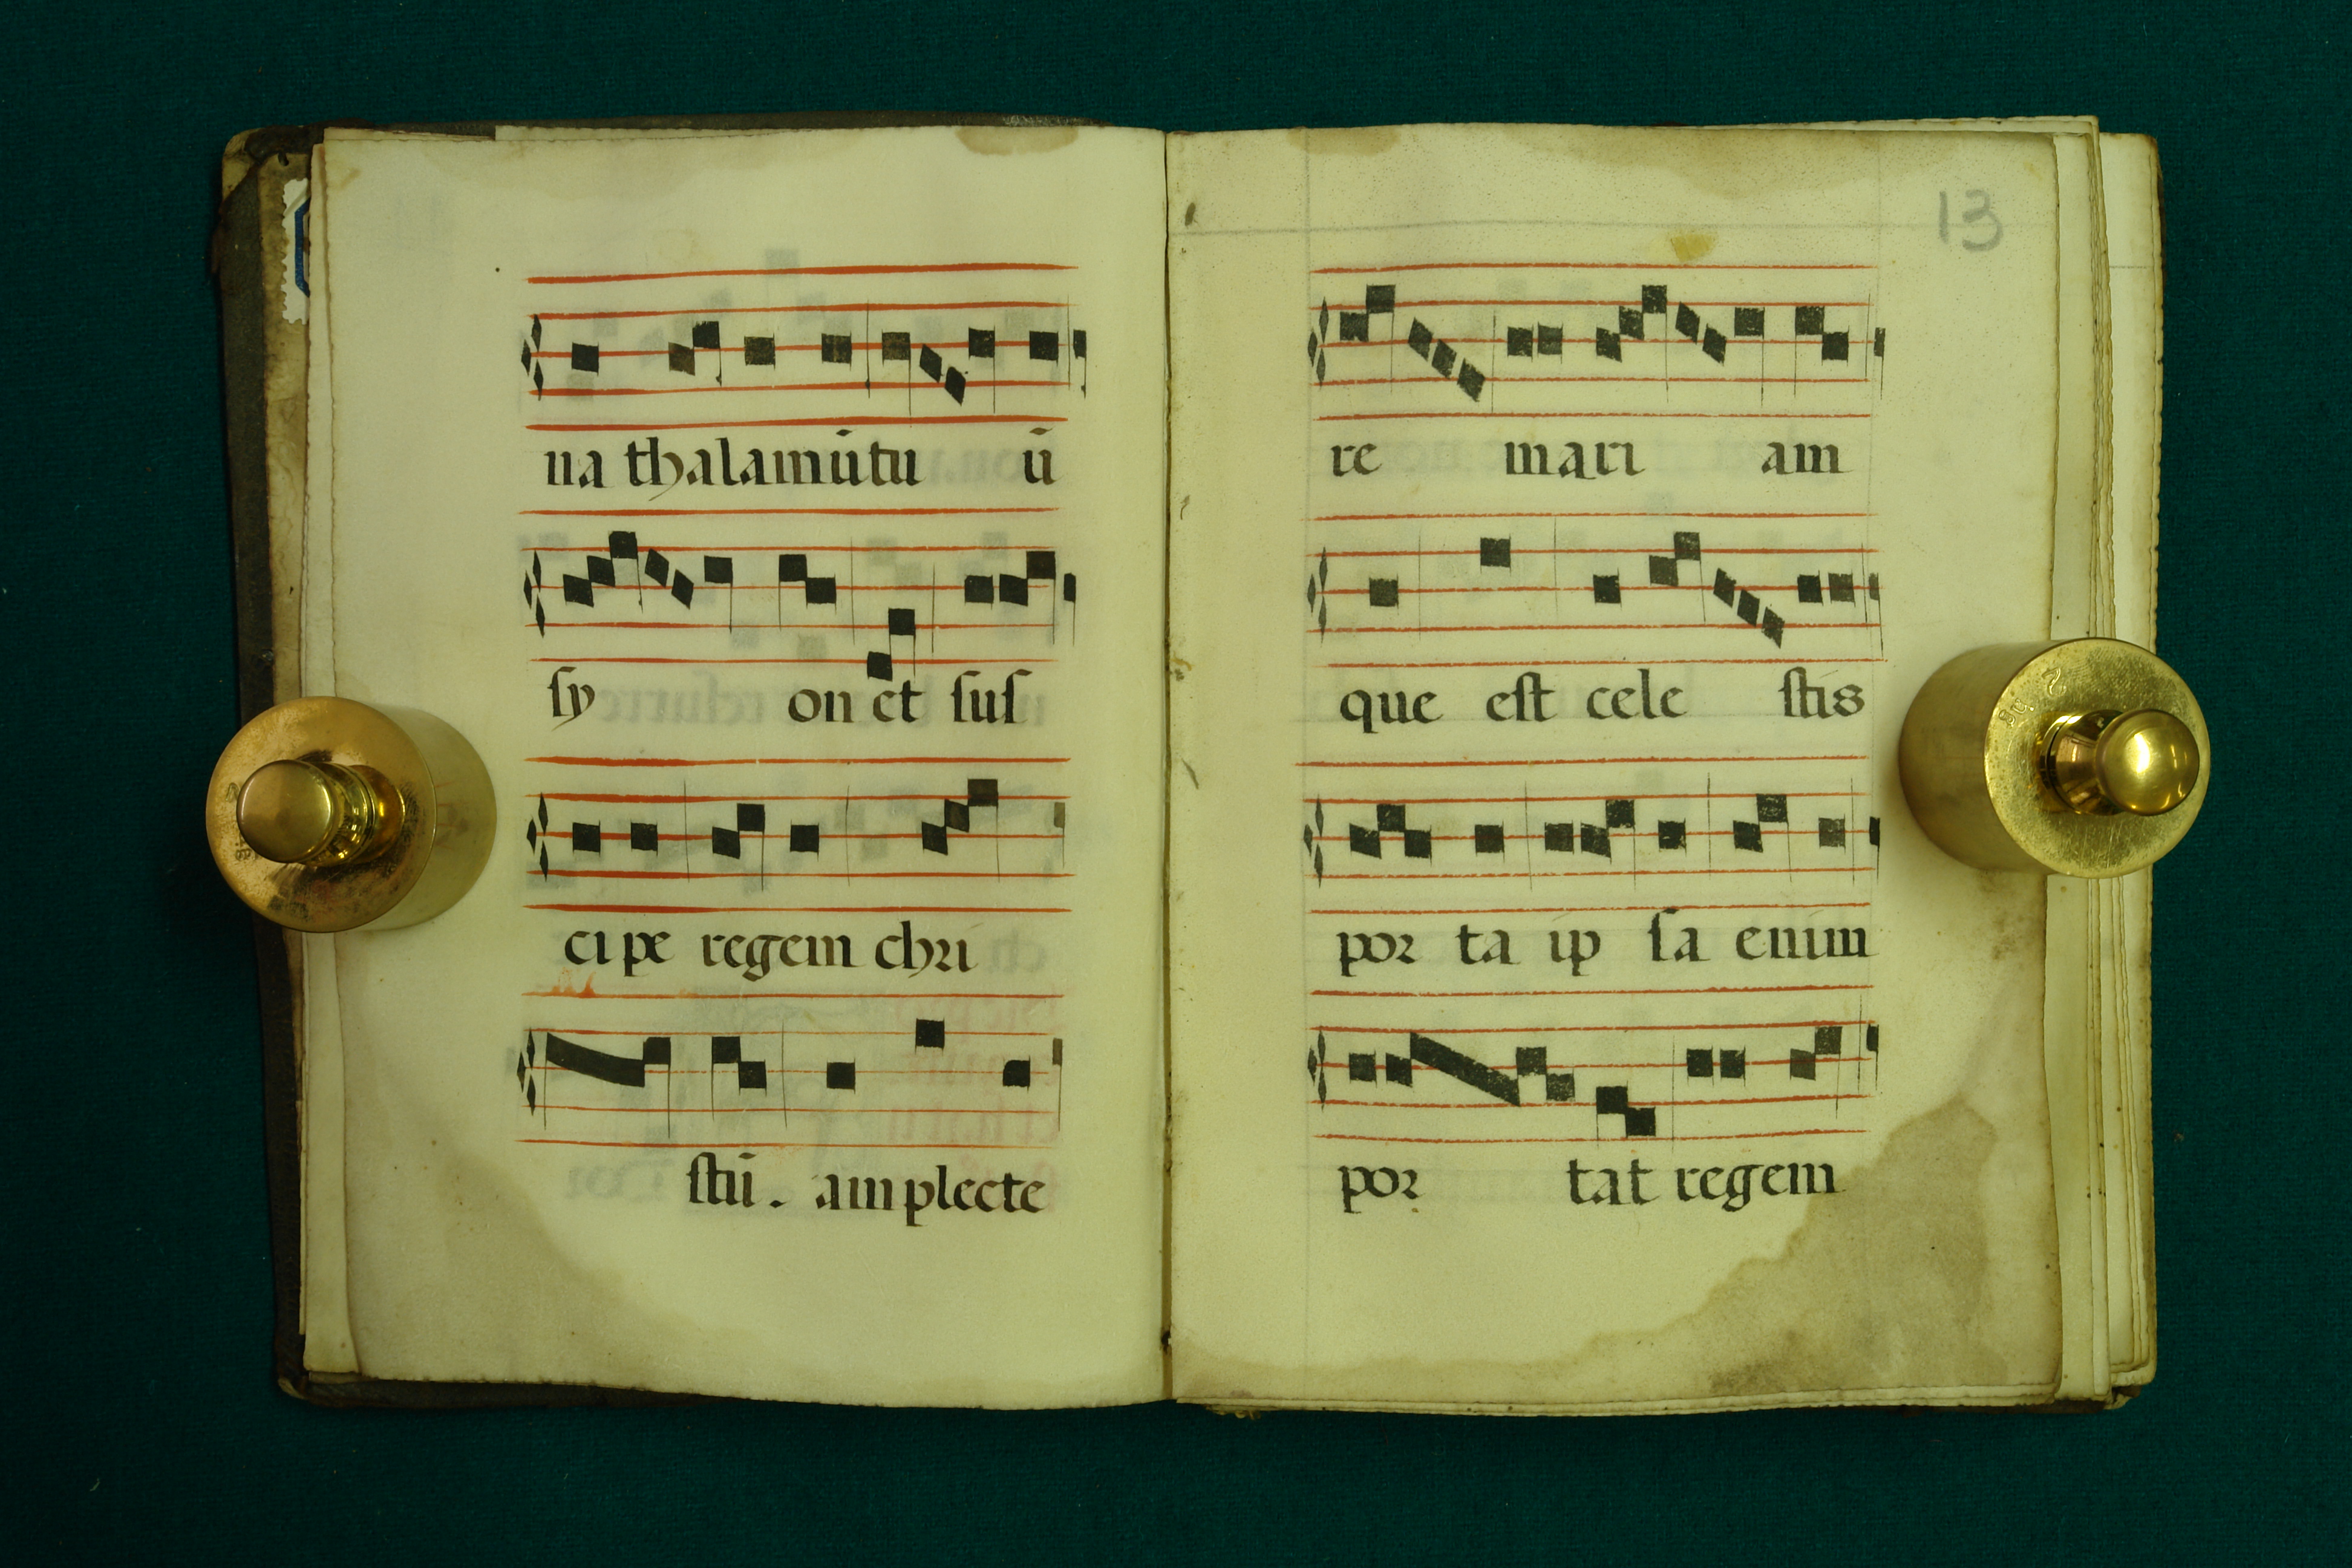 na thalamūtu ū
ſy on et ſuſ
ci pe regem chri
ſtū . amplecte
13
re mari am
que eſt cele ſtis
por ta ip ſa enim
por tat regem